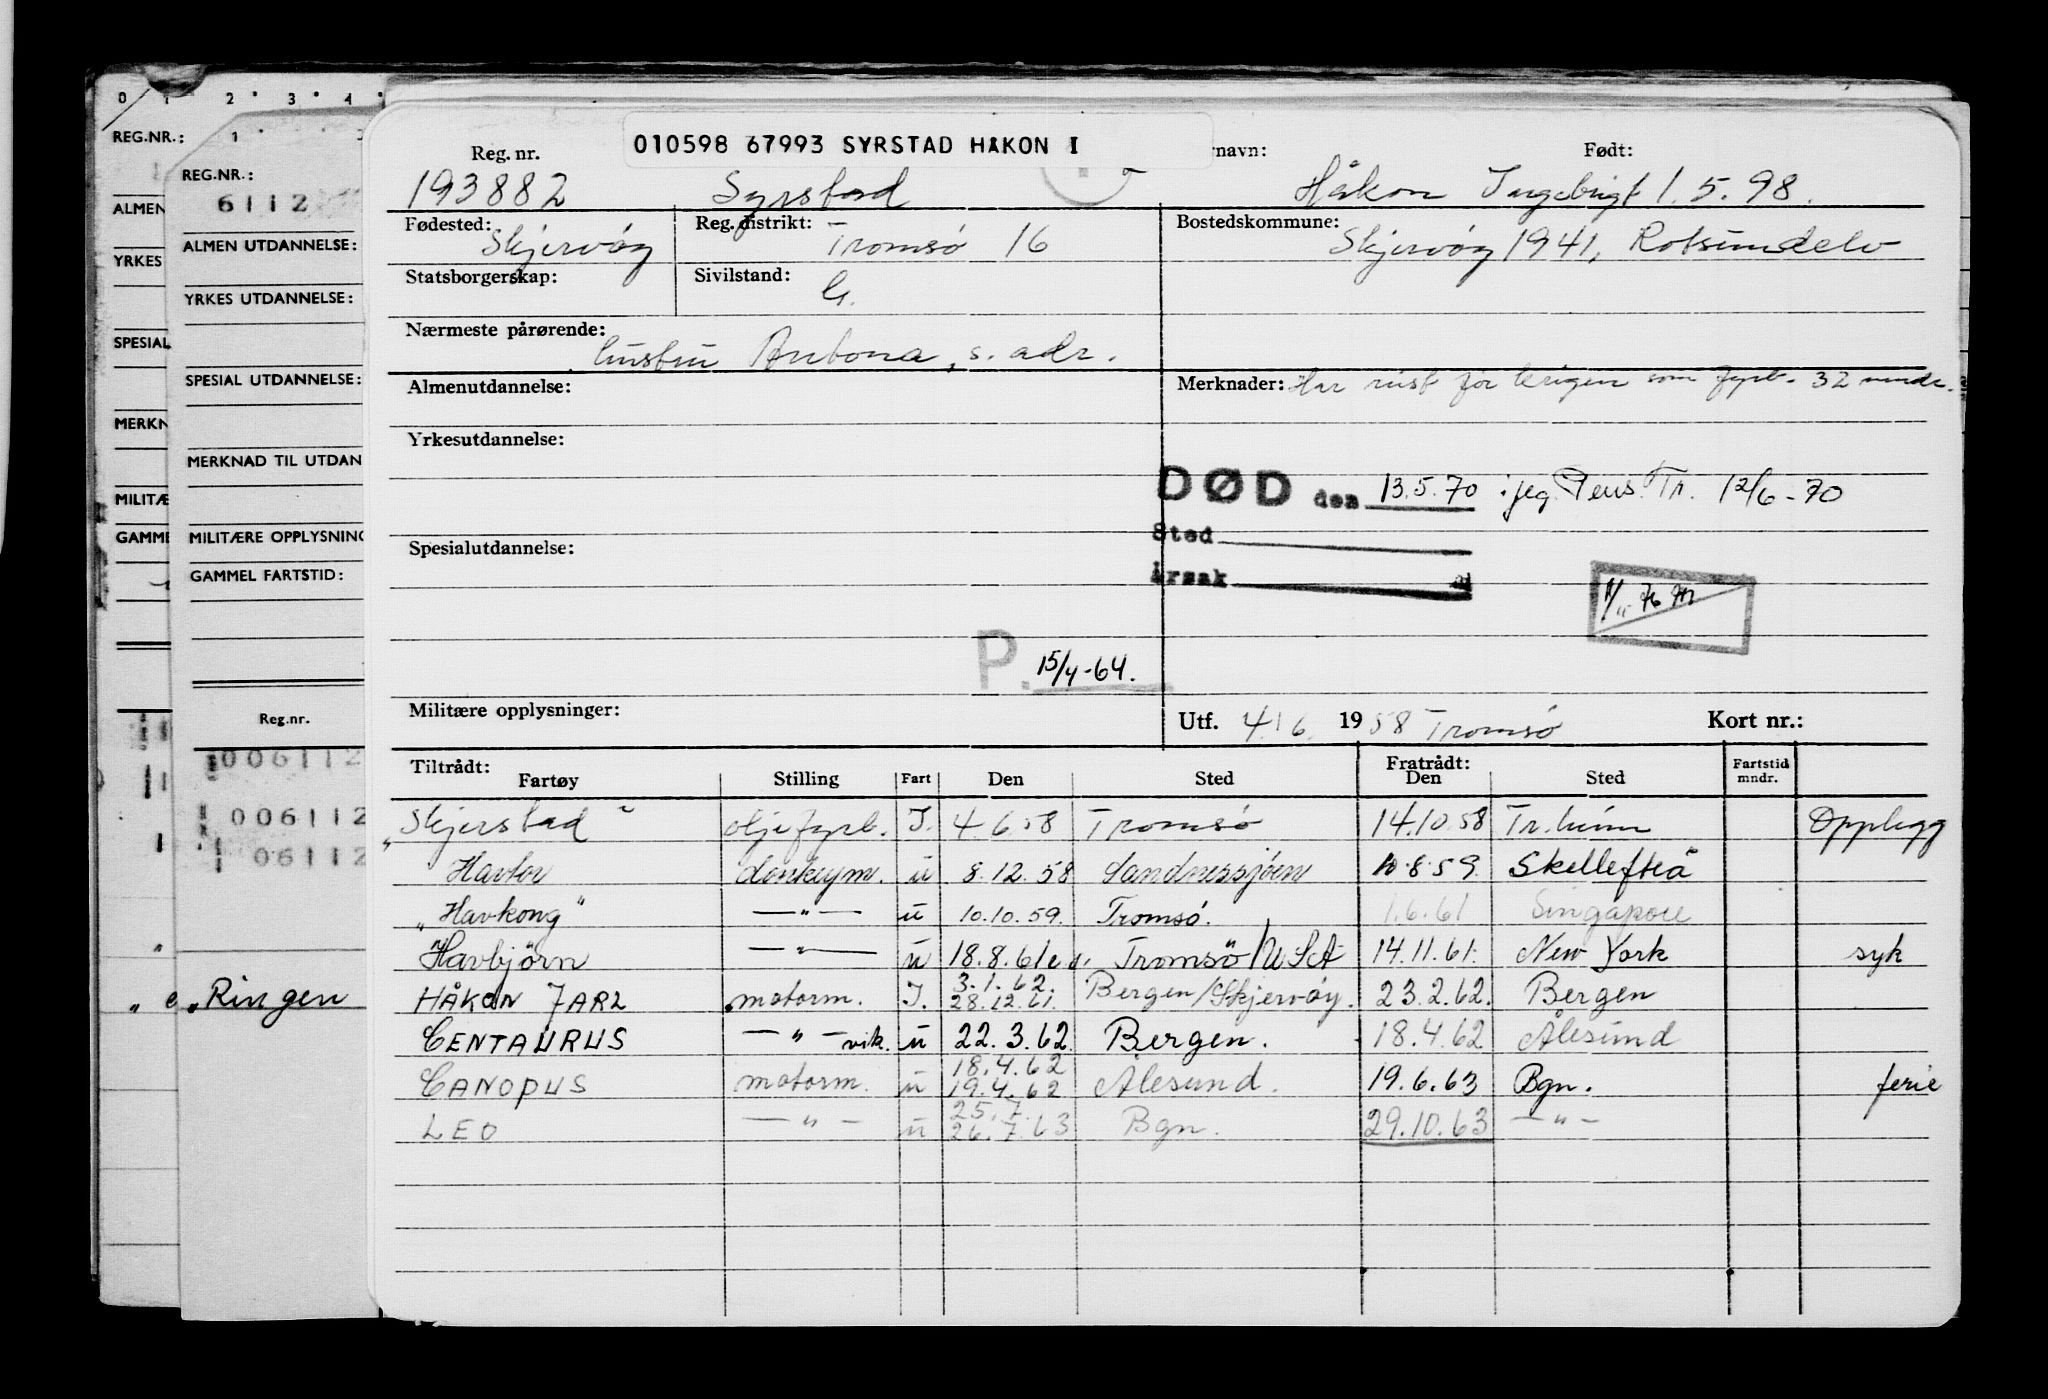 0 1 2 3 4
REG.NR.:
ALMEN
YRKES
SPESIAL
MERKN
MILITÆ
GAMME
1
REG.NR.:
6112
ALMEN UTDANNELSE:
YRKES UTDANNELSE:
SPESIAL UTDANNELSE:
MERKNAD TIL UTDAN
MILITÆRE OPPLYSNING
GAMMEL FARTSTID:
Reg.nr.
006112
006112
06112
„Ringen
010598 67993 SYRSTAD HÅKON I
Reg. nr. rnavn: Født:
193882 Syrstad Håkon Ingebrigt 1.5.98.
Fødested: Skjervøy Reg. distrikt: Tromsø 16 Bostedskommune: Skjervøy 1941, Rotsundelv
Statsborgerskap: Sivilstand: G.
Nærmeste pårørende: hustru Antona, s. adr.
Almenutdannelse: Merknader: Har reist før krigen som fyrb. 32 mndr.
Yrkesutdannelse:
DØD den 13.5.70 ifg. Pens.Tr. 12/6-70
Sted
Spesialutdannelse:
Årsak
P. 15/4-64.
Militære opplysninger: Utf. 4/6 1958 Tromsø Kort nr.:
Tiltrådt: Fratrådt: Fartstid
Fartøy Stilling Fart Den Sted Den Sted mndr.
„Skjerstad" oljefyrb. I. 4 6.58 Tromsø 14.10.58 Tr.heim Opplegg
Havtor donkeym. u 8.12.58 Sandnessjøen 10.8.59. Skellefteå
„Havkong" —"— u 10.10.59. Tromsø. 1.6.61 Singapore
Havbjörn —"— u 18.8.61 Tromsö/USA 14.11.61. New York syk
3.1.62.
HÅKON JARL motorm. I. 28.12.61. Bergen/Skjervøy. 23.2.62. Bergen
CENTAURUS —"— vik. u 22.3.62. Bergen. 18.4.62 Ålesund
18.4.62
CANOPUS motorm. u 19.4.62 Ålesund. 19.6.63 Bgn. ferie
25.7.
LEO —"— u 26.7.63 Bgn. 29.10.63 —"—